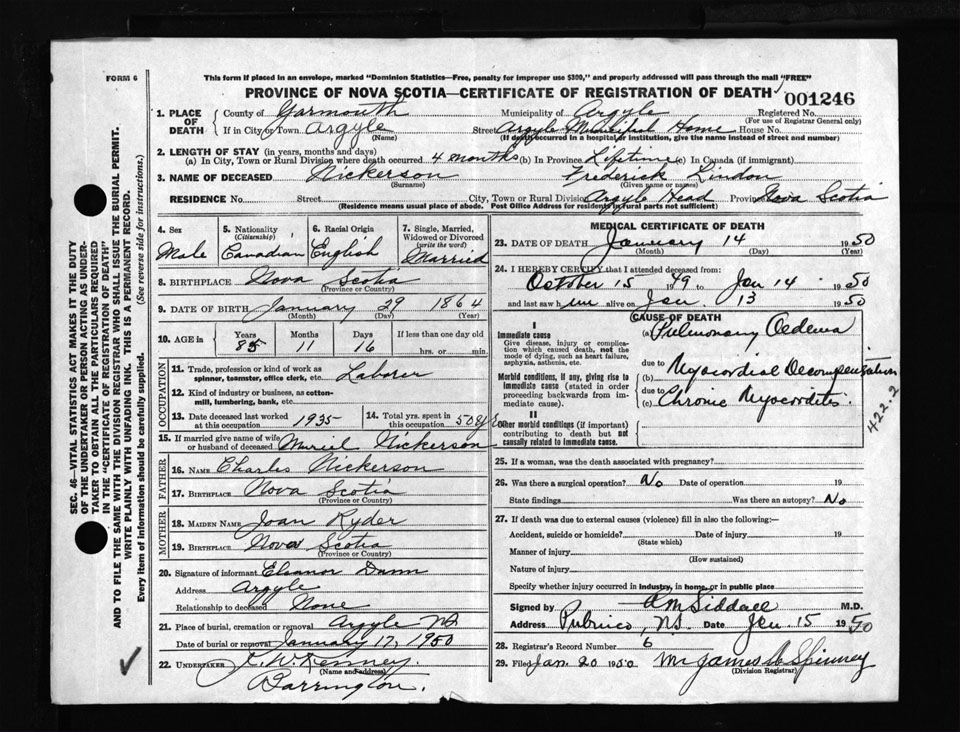 FORM 6
This form if placed in an envelope, marked "Dominion Statistics—Free, penalty for improper use $300," and properly addressed will pass through the mail "FREE"
PROVINCE OF NOVA SCOTIA—CERTIFICATE OF REGISTRATION OF DEATH
001246
1. PLACE OF DEATH
County of Yarmouth
Municipality of Argyle
Registered No.
(For use of Registrar General only)
If in City or Town Argyle
(Name)
Street Argyle Municipal Home House No.
(If death occurred in a hospital or institution, give the name instead of street and number)
2. LENGTH OF STAY (in years, months and days)
(a) In City, Town or Rural Division where death occurred 4 months (b) In Province Lifetime (c) In Canada (if immigrant)
3. NAME OF DECEASED Nickerson Frederick Lindon
(Surname) (Given name or names)
RESIDENCE No. Street City, Town or Rural Division Argyle Head Province Nova Scotia
(Residence means usual place of abode. Post Office Address for residents in rural parts not sufficient)
4. Sex
Male
5. Nationality
(Citizenship)
Canadian
6. Racial Origin
English
7. Single, Married, Widowed or Divorced
(write the word)
Married
8. BIRTHPLACE Nova Scotia
(Province or Country)
9. DATE OF BIRTH January 29 1864
(Month) (Day) (Year)
10. AGE in
Years Months Days If less than one day old
85 11 16 hrs. or min.
OCCUPATION
11. Trade, profession or kind of work as spinner, teamster, office clerk, etc. Laborer
12. Kind of industry or business, as cotton-mill, lumbering, bank, etc.
13. Date deceased last worked at this occupation 1935
14. Total yrs. spent in this occupation 50 yrs
15. If married give name of wife or husband of deceased Muriel Nickerson
FATHER
16. NAME Charles Nickerson
17. BIRTHPLACE Nova Scotia
(Province or Country)
MOTHER
18. MAIDEN NAME Joan Ryder
19. BIRTHPLACE Nova Scotia
(Province or Country)
20. Signature of informant Eleanor Dunn
Address Argyle
Relationship to deceased None
21. Place of burial, cremation or removal Argyle NS
Date of burial or removal January 17, 1950
22. UNDERTAKER Kenney
(Name and address)
Barrington.
MEDICAL CERTIFICATE OF DEATH
23. DATE OF DEATH January 14 1950
(Month) (Day) (Year)
24. I HEREBY CERTIFY that I attended deceased from:
October 15 1949 to Jan 14 1950
and last saw him alive on Jan. 13 1950
CAUSE OF DEATH
I
Immediate cause
Give disease, injury or complication which caused death, not the mode of dying, such as heart failure, asphyxia, asthenia, etc.
(a) Pulmonary Oedema
due to
Morbid conditions, if any, giving rise to immediate cause (stated in order proceeding backwards from immediate cause).
(b) Myocardial Decompensation
due to
(c) Chronic Myocarditis.
422.2
II
Other morbid conditions (if important) contributing to death but not causally related to immediate cause.
25. If a woman, was the death associated with pregnancy?
26. Was there a surgical operation? No Date of operation 19
State findings Was there an autopsy? No
27. If death was due to external causes (violence) fill in also the following:—
Accident, suicide or homicide? Date of injury 19
(State which)
Manner of injury
(How sustained)
Nature of injury
Specify whether injury occurred in industry, in home, or in public place
Signed by A M Siddall M.D.
Address Pubnico, NS. Date Jan. 15 1950
28. Registrar's Record No. 6
29. Filed Jan. 20 1950 James Spinney
(Division Registrar)
SEC. 46—VITAL STATISTICS ACT MAKES IT THE DUTY OF THE UNDERTAKER OR PERSON ACTING AS UNDERTAKER TO OBTAIN ALL THE PARTICULARS REQUIRED IN THE "CERTIFICATE OF REGISTRATION OF DEATH"
AND TO FILE THE SAME WITH THE DIVISION REGISTRAR WHO SHALL ISSUE THE BURIAL PERMIT.
WRITE PLAINLY WITH UNFADING INK. THIS IS A PERMANENT RECORD.
Every item of information should be carefully supplied. (See reverse side for instructions.)